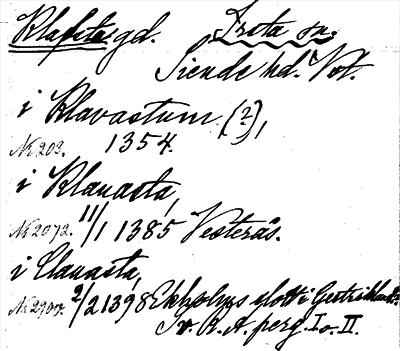 Klafsta gd. Irsta sn.
Siende hd. Vstm.
i Klavastum (?),
Nr 203. 1354.
i Klauasta,
Nr 2072. 11/1 1385 Vesterås.
i Clauasta,
Nr 2900. 2/2 1398 Ekholms slott i Gestrikland.
Sv. R. A. perg. I o. II.